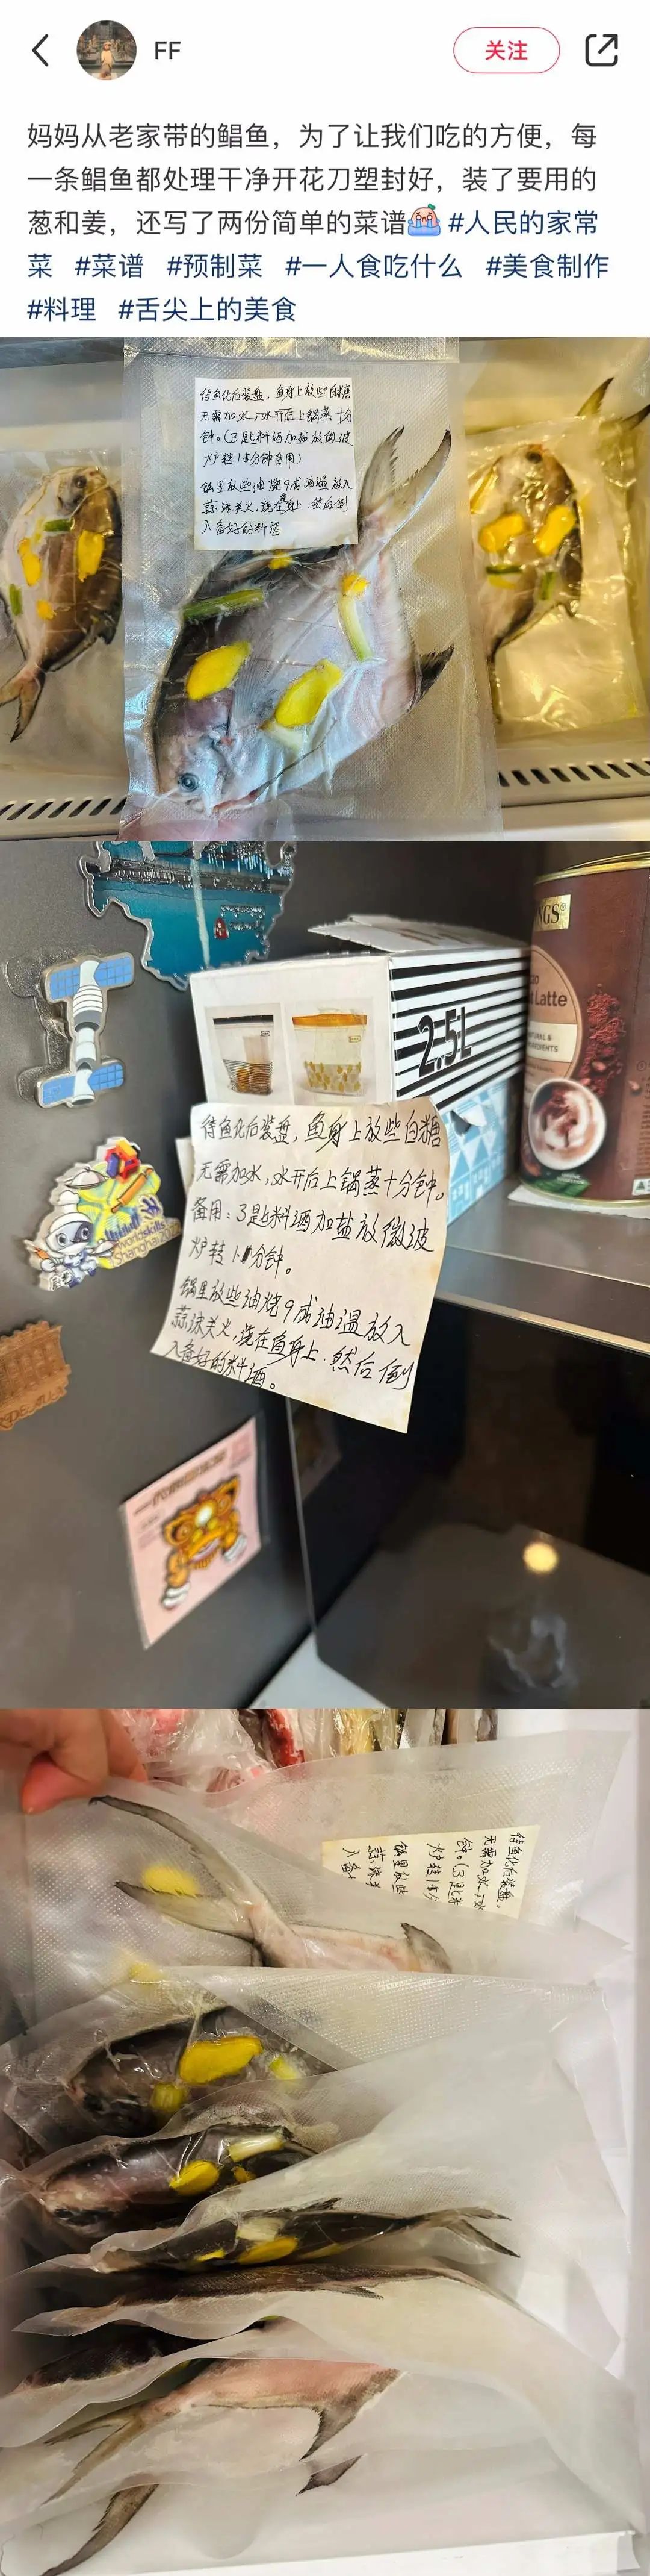 FF
关注
妈妈从老家带的鲳鱼，为了让我们吃的方便，每
一条鲳鱼都处理干净开花刀塑封好，装了要用的
葱和姜，还写了两份简单的菜谱😭 #人民的家常
菜 #菜谱 #预制菜 #一人食吃什么 #美食制作
#料理 #舌尖上的美食
待鱼化后装盘，鱼身上放些白糖
无需加水，水开后上锅蒸十分
钟。(3匙料酒加盐放微波
炉转1分钟备用)
锅里放些油烧9成油温放入
蒜沫关火，浇在鱼身上，然后倒
入备好的料酒
NGS
Latte
2.5L
待鱼化后装盘，鱼身上放些白糖
无需加水，水开后上锅蒸十分钟。
备用：3匙料酒加盐放微波
炉转1分钟。
锅里放些油烧9成油温放入
蒜沫关火，浇在鱼身上，然后倒
入备好的料酒。
worldskills
Shanghai 2022
待鱼化后装盘，
无需加水，水
钟。(3匙料
炉转1分
锅里放些
蒜沫关
入备